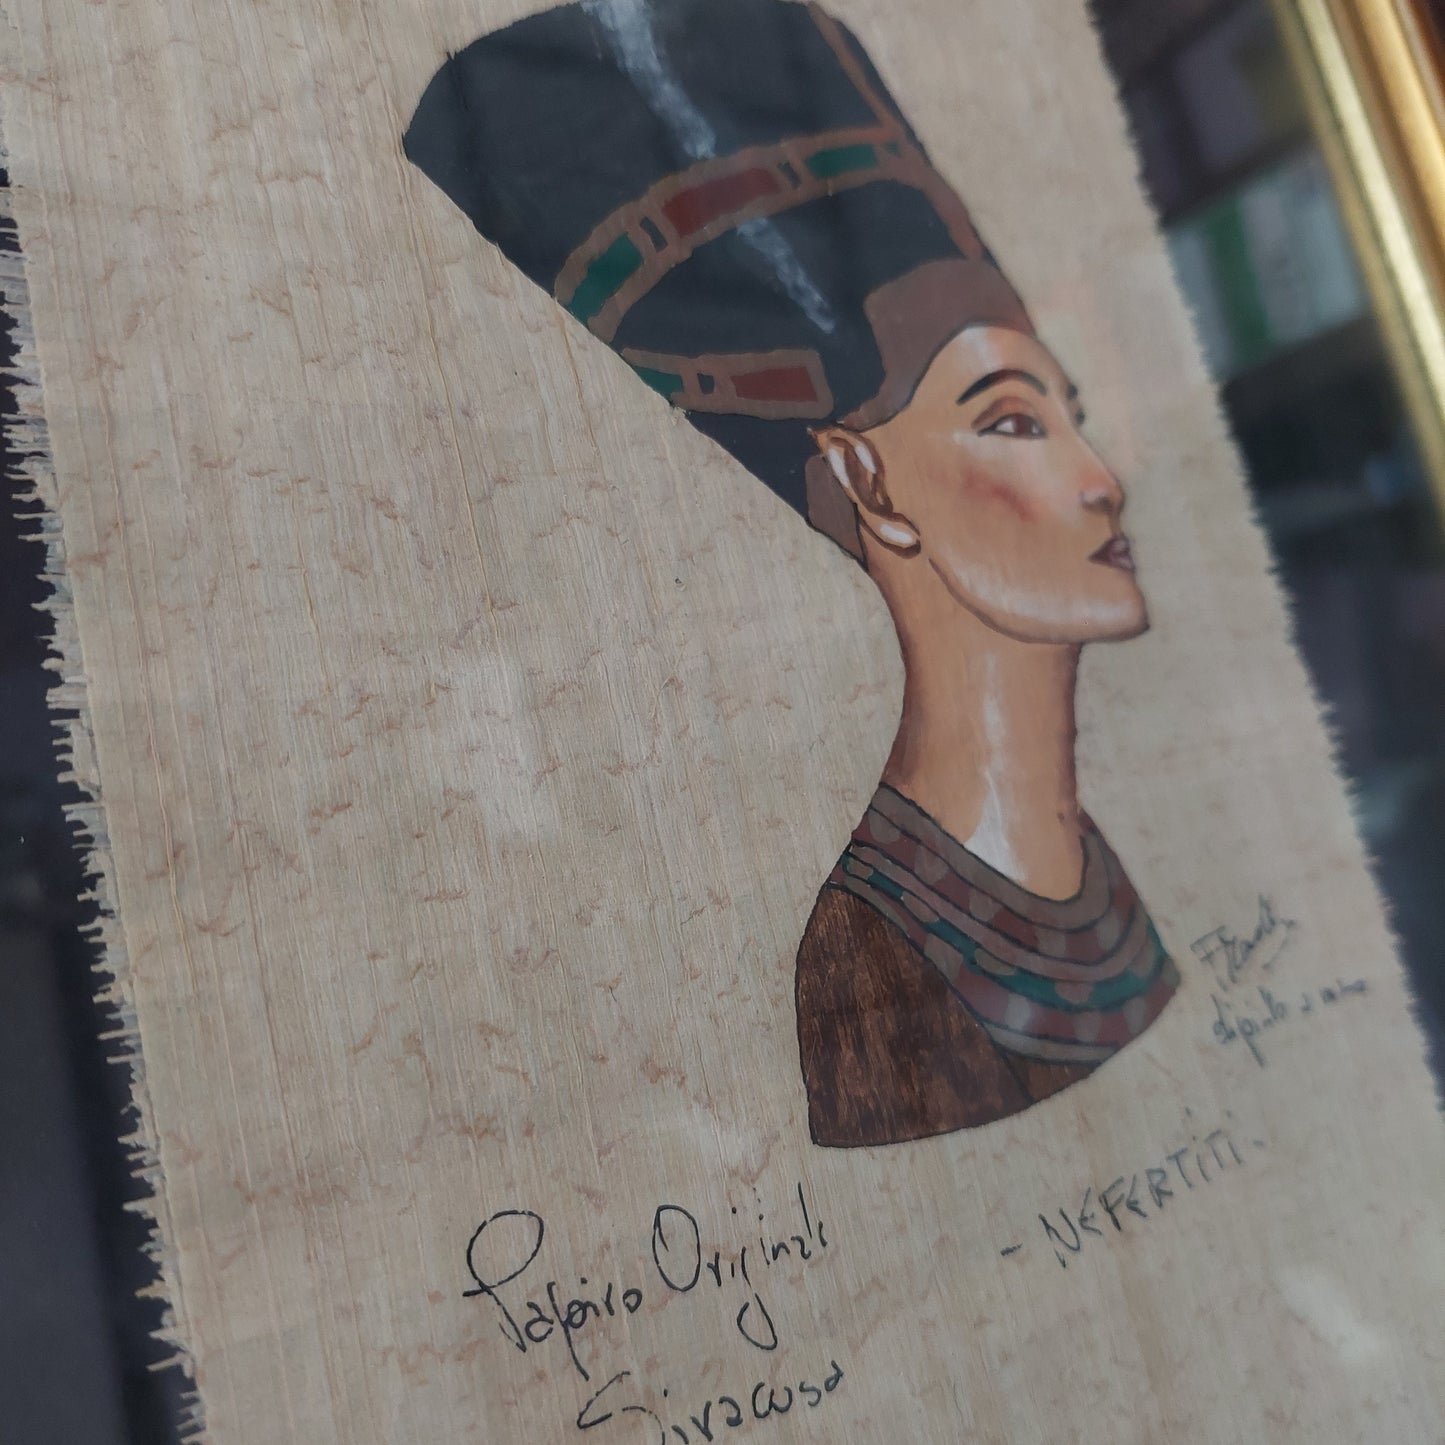 dipinto a mano
- NEFERTITI -
Papiro Originale
Siracusa